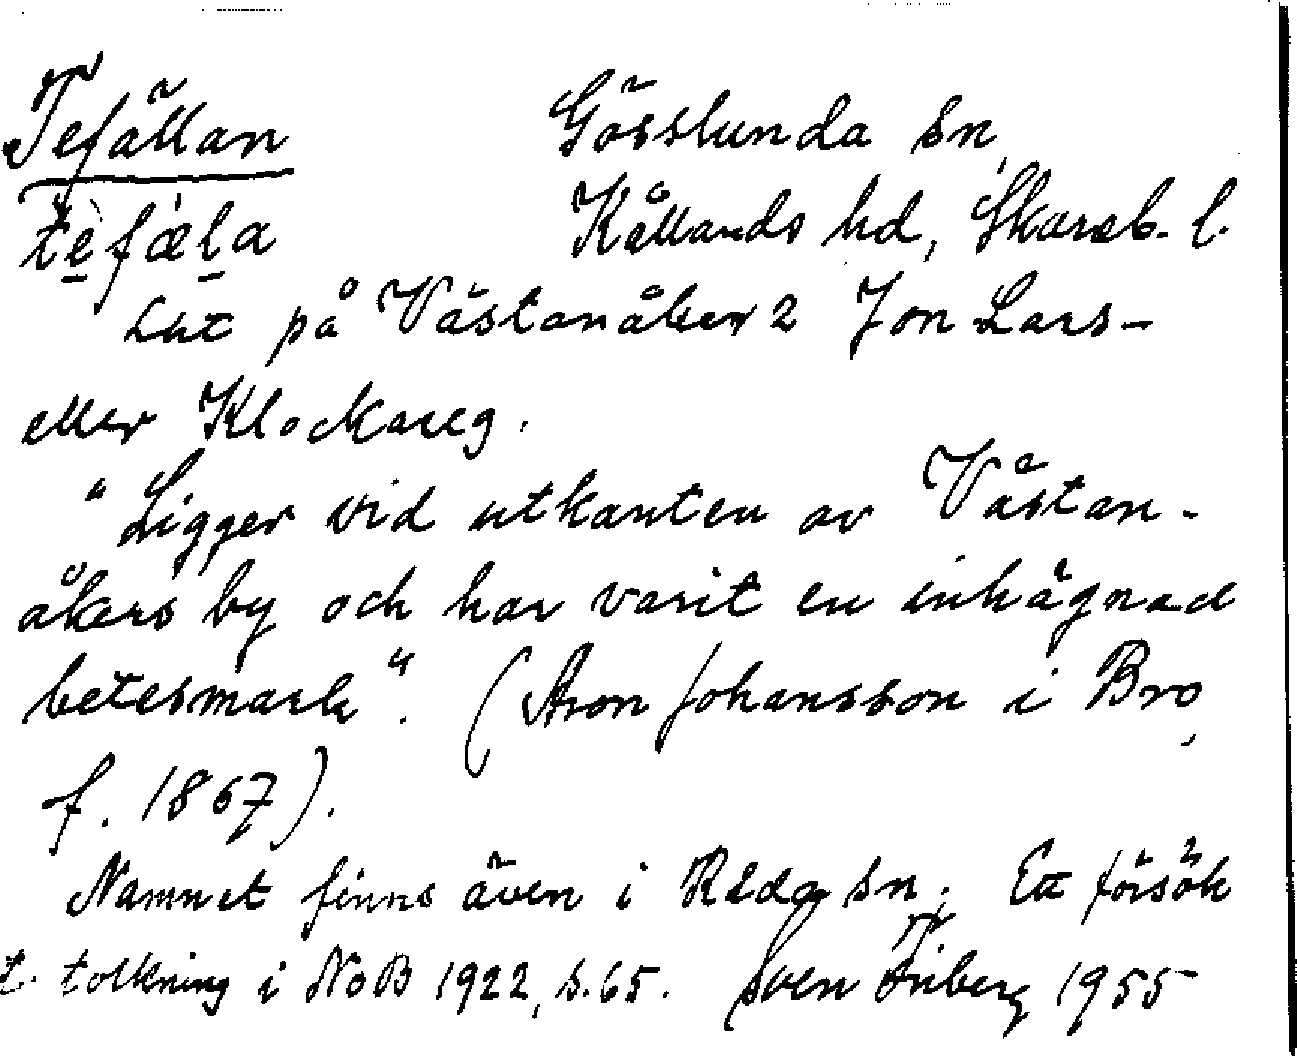 Tefällan Gösslunda sn,
tèfæ̀la Kållands hd, Skarab. l.
Lht på Västanåker 2 Jon Lars-
eller Klockareg.
"Ligger vid utkanten av Västan-
åkers by och har varit en inhägnad
betesmark". (Aron Johansson i Bro,
f. 1867).
Namnet finns även i Råda sn. Ett försök
t. tolkning i NoB 1922, s. 65. Sven Friberg 1955